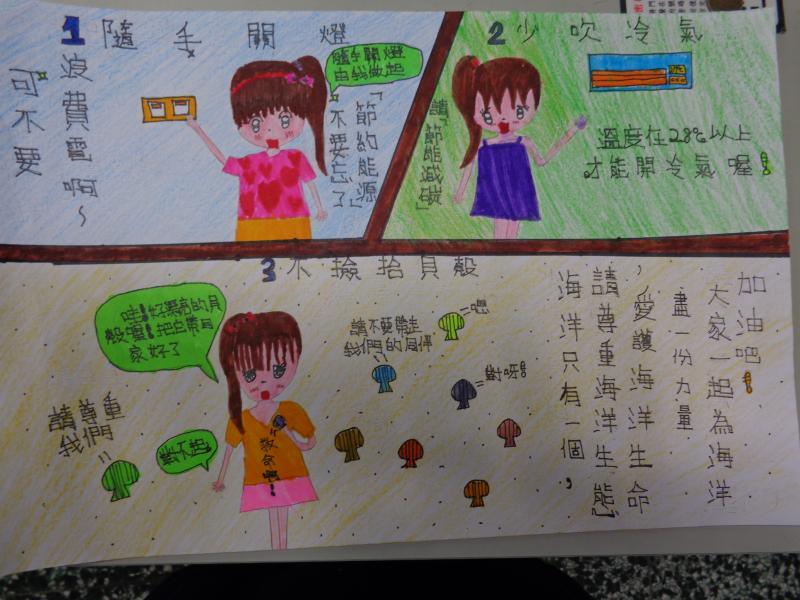 1 隨手關燈
可不要
浪費電啊~
隨手關燈
由我做起
「節約能源」
不要忘了
2 少吹冷氣
請「節能減碳」
溫度在28℃以上
才能開冷氣喔!
3 不撿拾貝殼
哇!好漂亮的貝
殼喔!把它帶回
家好了
請尊重
我們
對不起
救命啊!
請不要帶走
我們的同伴
嗯
對呀!
加油吧!
大家一起為海洋
盡一份力量
,愛護海洋生命
請尊重海洋生態」
海洋只有一個,